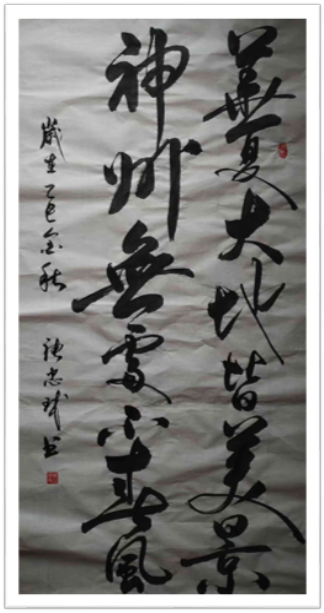 華夏大地皆美景
神州無處不春風
歲在乙巳金秋 張忠書